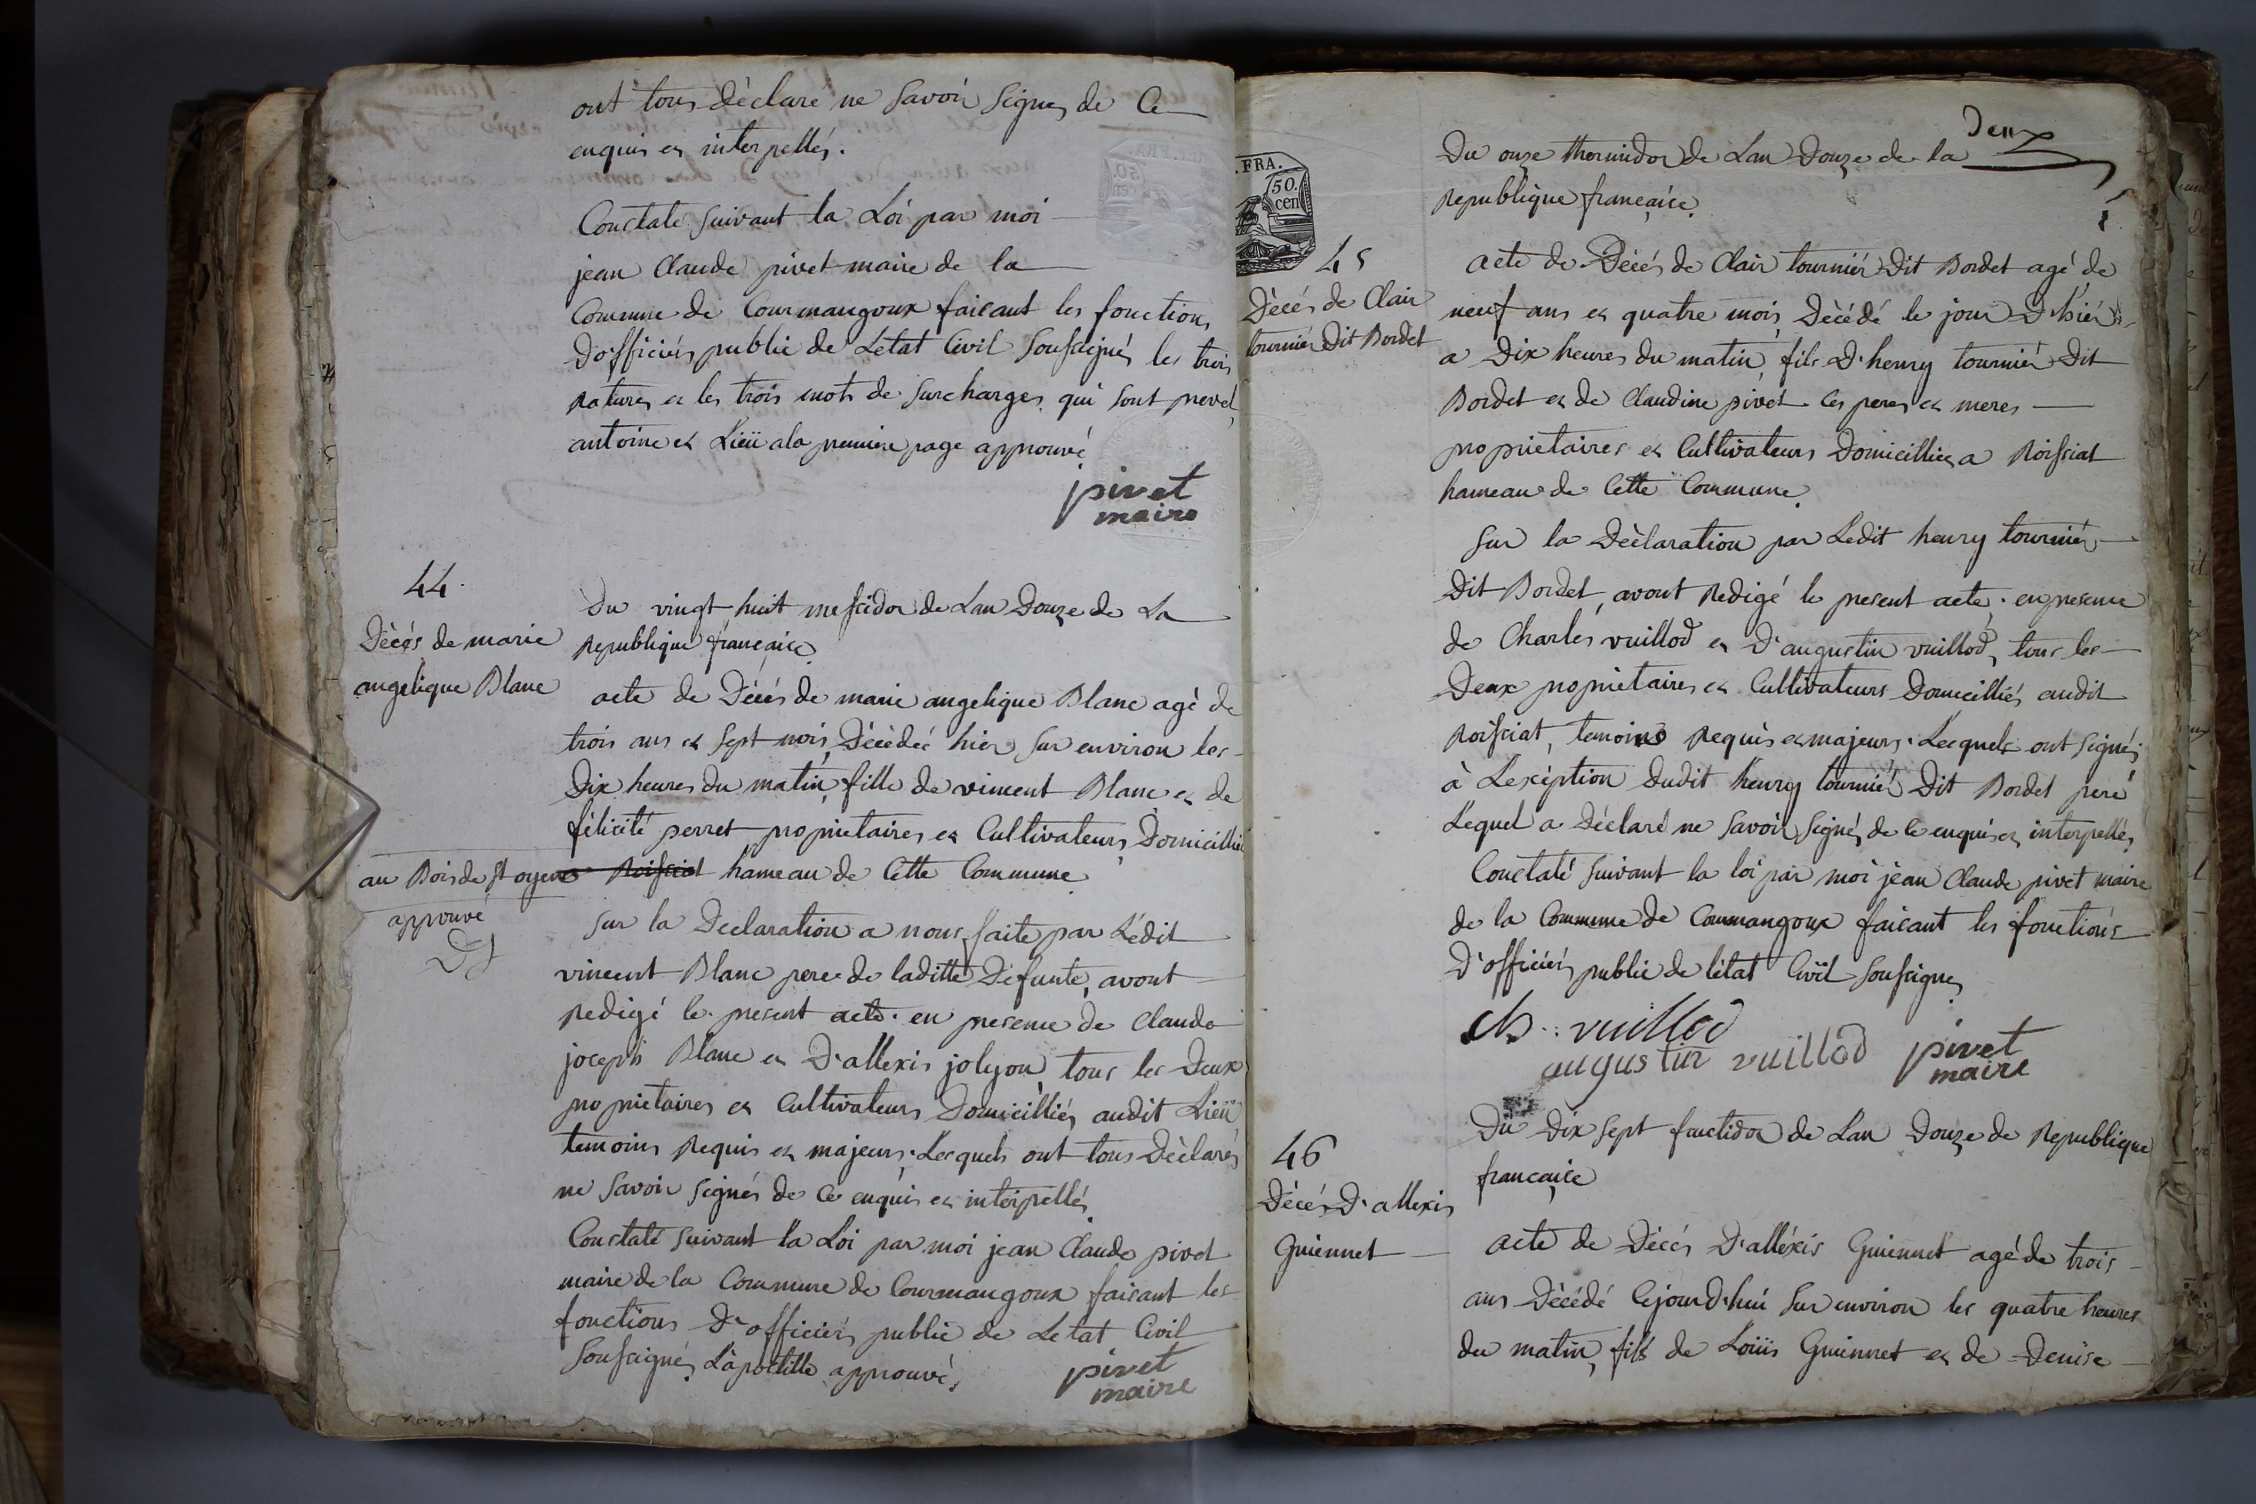 ont tous déclaré ne Savoir Signer de Ce
enquis et interpellés.
Constaté Suivant la Loi par moi
jean Claude pivet maire de la
Commune de Courmangoux faisant les fonctions
D'officiér public de Letat Civil Soussigné, les trois
Ratures et les trois mots de Surcharges qui sont
antoine et Lieü a la premiere page approuvé
pivet
maire
44.
Décés de marie
angelique Blanc
Du vingt huit messidor de Lan Douze de La
Republique française.
acte de Décés de marie angelique Blanc agé de
trois ans et Sept mois, Décédée hier, Sur environ les
Dix heures du matin, fille de vincent Blanc et de
félicité perret propriétaires et Cultivateurs Domicilliés
au Bois de St oyend Roissiat hameau de Cette Commune
approuvé
Sur la Declaration a nous faite par Lédit
vincent Blanc pere de laditte Défunte, avont
Redigé le present acte. en presence de Claude
joseph Blanc et D'allexis jolyon tous les Deux
propriétaires et Cultivateurs Domicilliés audit Lieü
temoins Requis et majeurs. Lesquels ont tous Déclarés
ne Savoir Signés de Ce enquis et interpellés
Constaté Suivant la Loi par moi jean Claude pivet
maire de la Commune de Courmangoux faisant les
fonctions D'officiér public de Letat Civil
Soussigné, L'apostille approuvé.
pivet
maire
Deux
.FRA.
50.
cen
Du onze thermidor de Lan Douze de la
Republique française.
45
Décés de Clair
tourniér Dit Bordet
acte de Décés de Clair tourniér Dit Bordet agé de
neuf ans et quatre mois, Décédé le jour D'hiér
a Dix heures du matin, fils D'henry tourniér Dit
Bordet et de Claudine pivet Ces peres et meres
propriétaires et Cultivateurs Domicilliés a Roissiat
hameau de Cette Commune.
Sur la Déclaration par Ledit henry tourniér
Dit Bordet, avont Redigé le present acte. en presence
de Charles vuillod et D'augustin vuillod, tous les
Deux propriétaires et Cultivateurs Domicilliés audit
Roissiat, temoins Requis et majeurs. Lesquels ont Signés
à Lexéption Dudit henry tourniér Dit Bordet peré
Lequel a Déclaré ne Savoir Signé, de Ce enquis et interpellés,
Constaté Suivant la loi par moi jean Claude pivet maire
de la Commune de Courmangoux faisant les fonctions
D'officiér public de létat Civil Soussigné
Ch. vuillod
augustin vuillod
pivet
maire
46
Décés D'allexis
Guiennet
Du Dix Sept fructidor de Lan Douze de Republique
française
acte de Décés D'alléxis Guiennet agé de trois
ans Décédé Cejourd'hui Sur environ les quatre heures
du matin, fils de Loüis Guiennet et de Denise